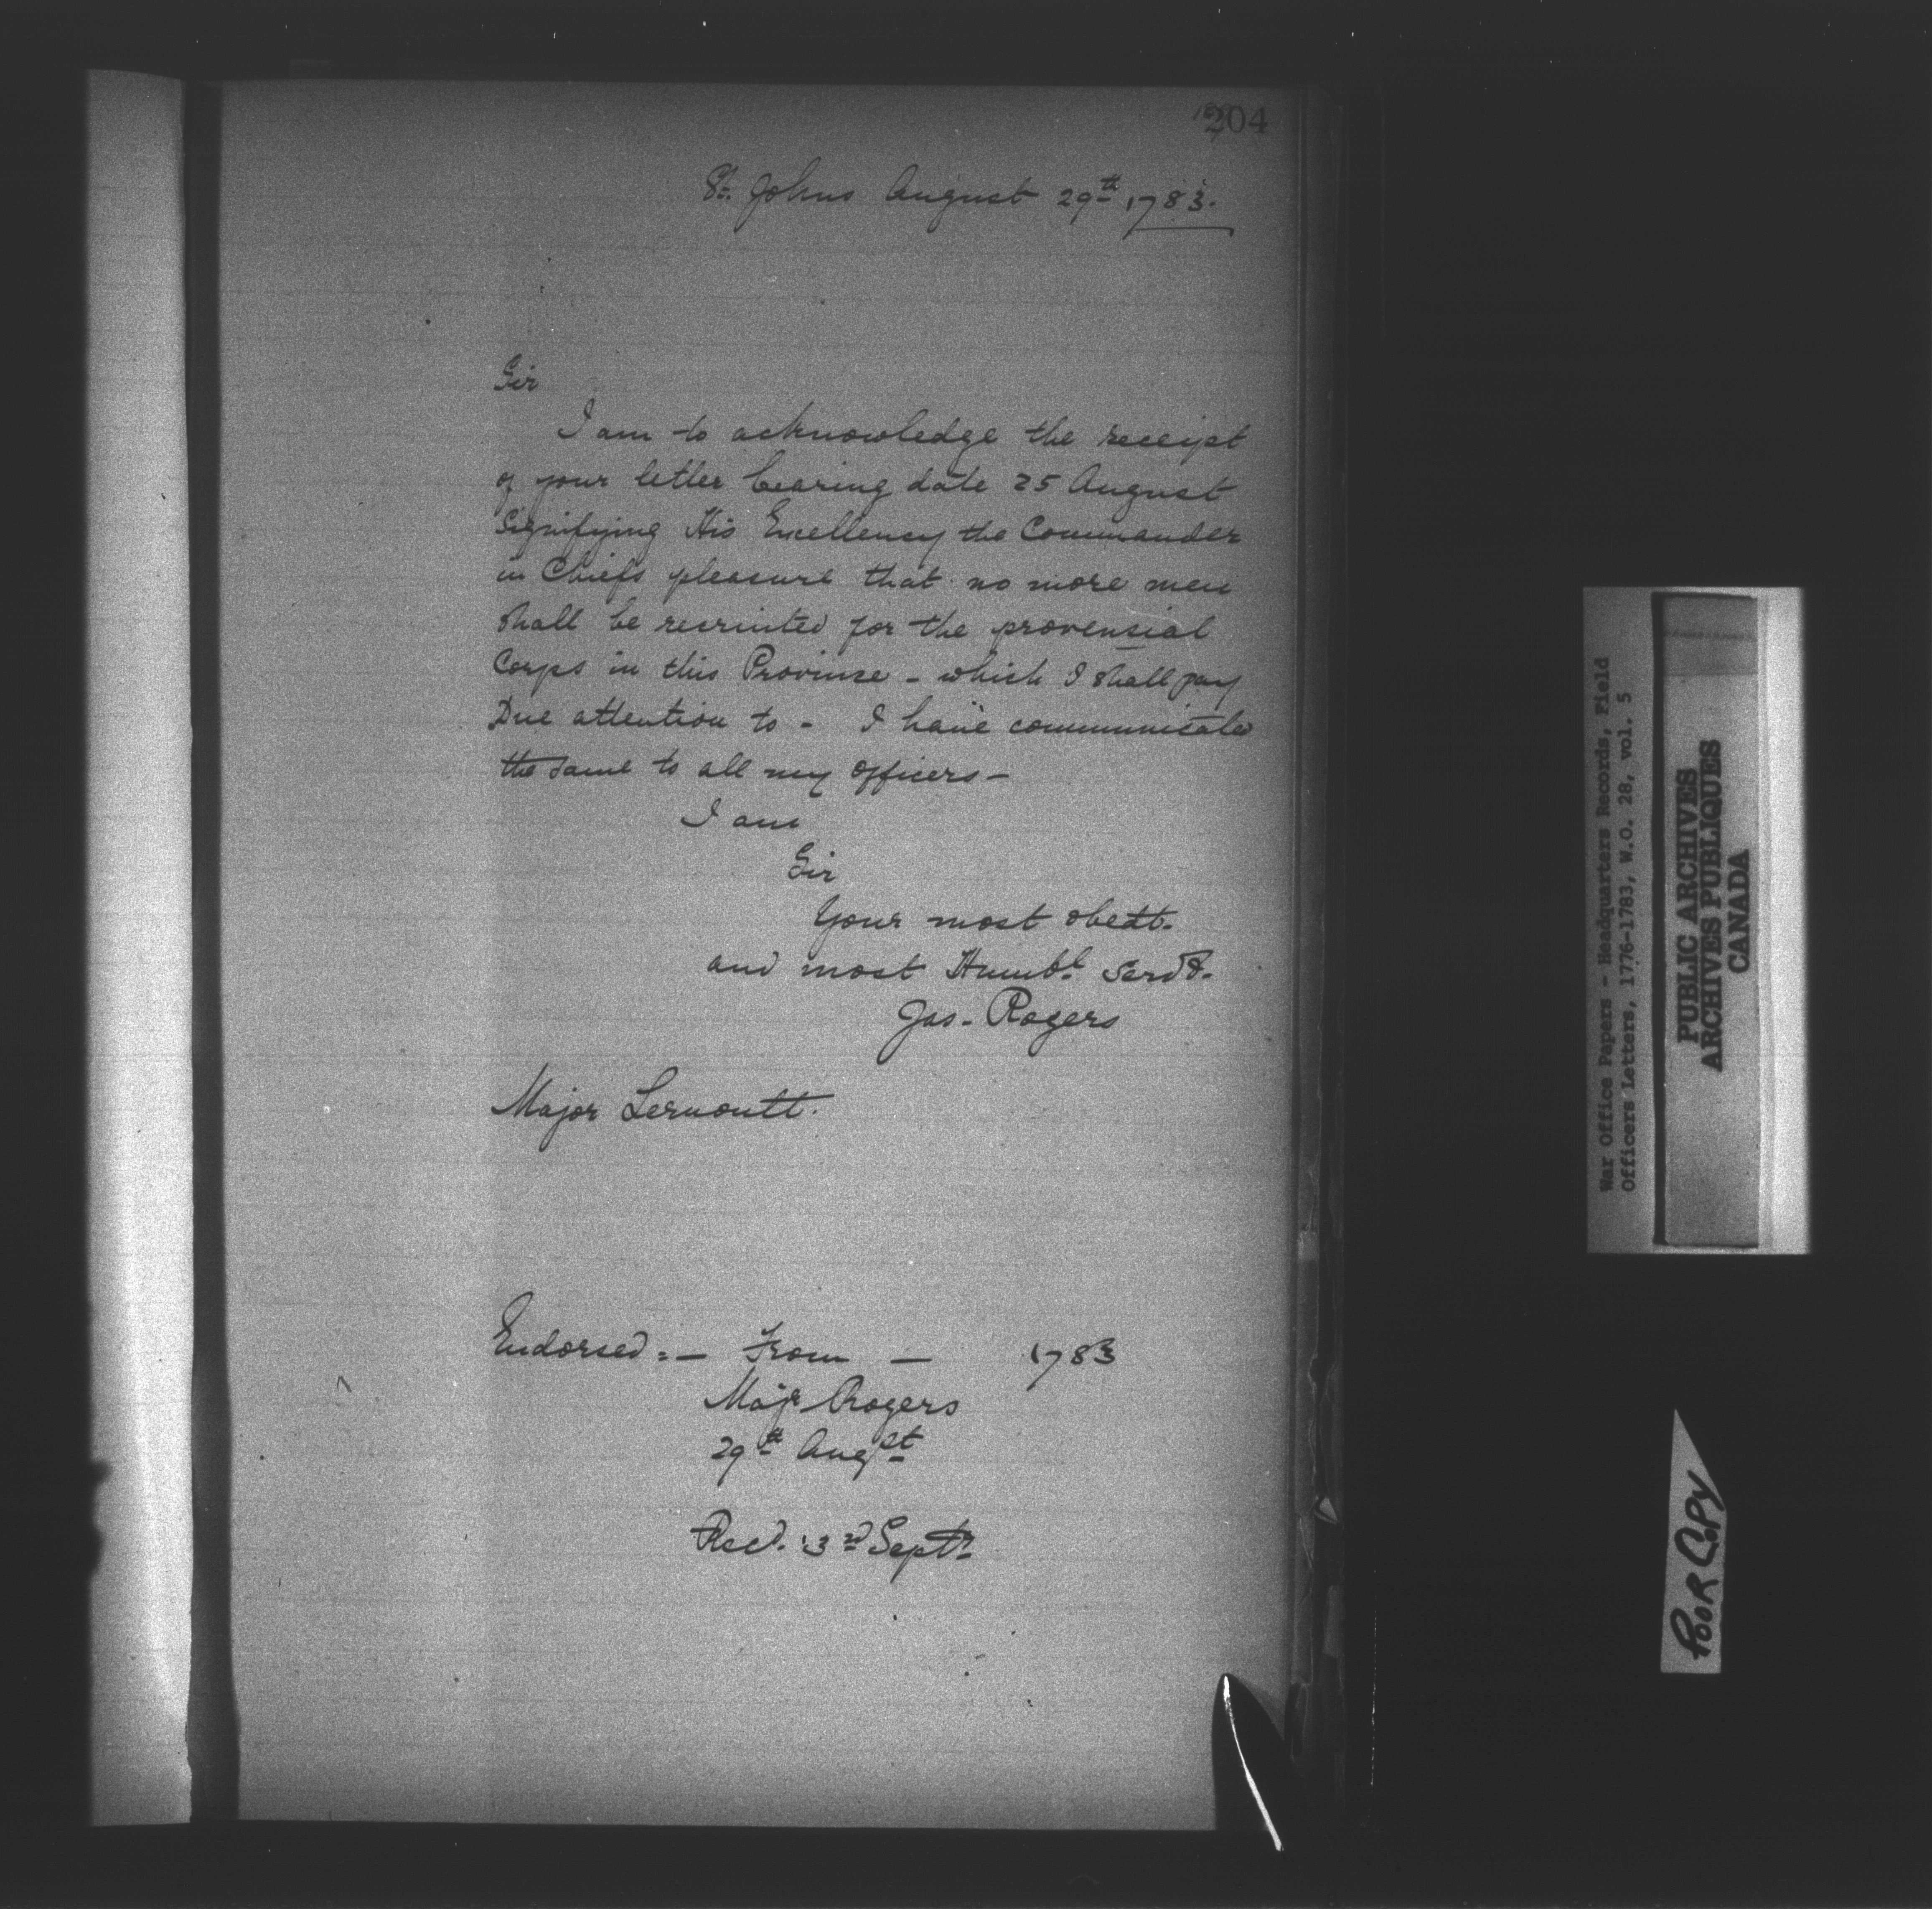 204
St. Johns August 29th 1783.
Sir
I am to acknowledge the receipt
of your letter bearing date 25 August
Signifying His Excellency the Commander
in Chiefs pleasure that no more men
shall be recruited for the provensial
Corps in this Province - which I shall pay
Due attention to - I have communicated
the same to all my officers -
I am
Sir
Your most obedt.
and most Humbl. Servt.
Jas. Rogers
Major Lernoutt.
Endorsed :- From - 1783
Majr Rogers
29th Augst
Recd. 3rd Septr
War Office Papers - Headquarters Records, Field
Officers Letters, 1776-1783, W.O. 28, vol. 5
PUBLIC ARCHIVES
ARCHIVES PUBLIQUES
CANADA
POOR COPY